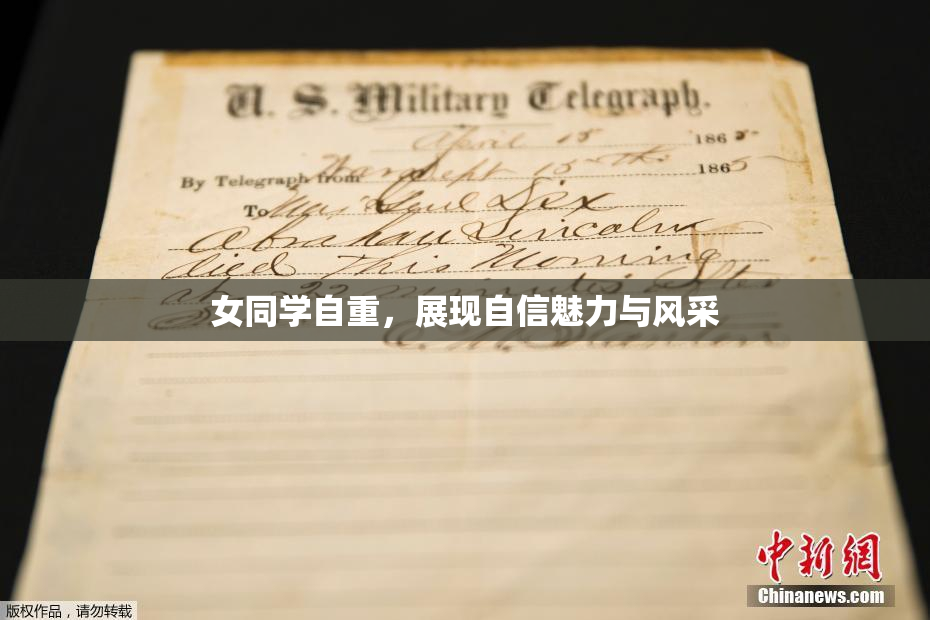 U. S. Military Telegraph.
April 15 1865
By Telegraph from War Dept 15th 1865
To Maj Genl Dix
Abraham Lincoln
died This Morning
at 22 minutes after
女同学自重，展现自信魅力与风采
E. M. Stanton
中新網
Chinanews.com
版权作品，请勿转载